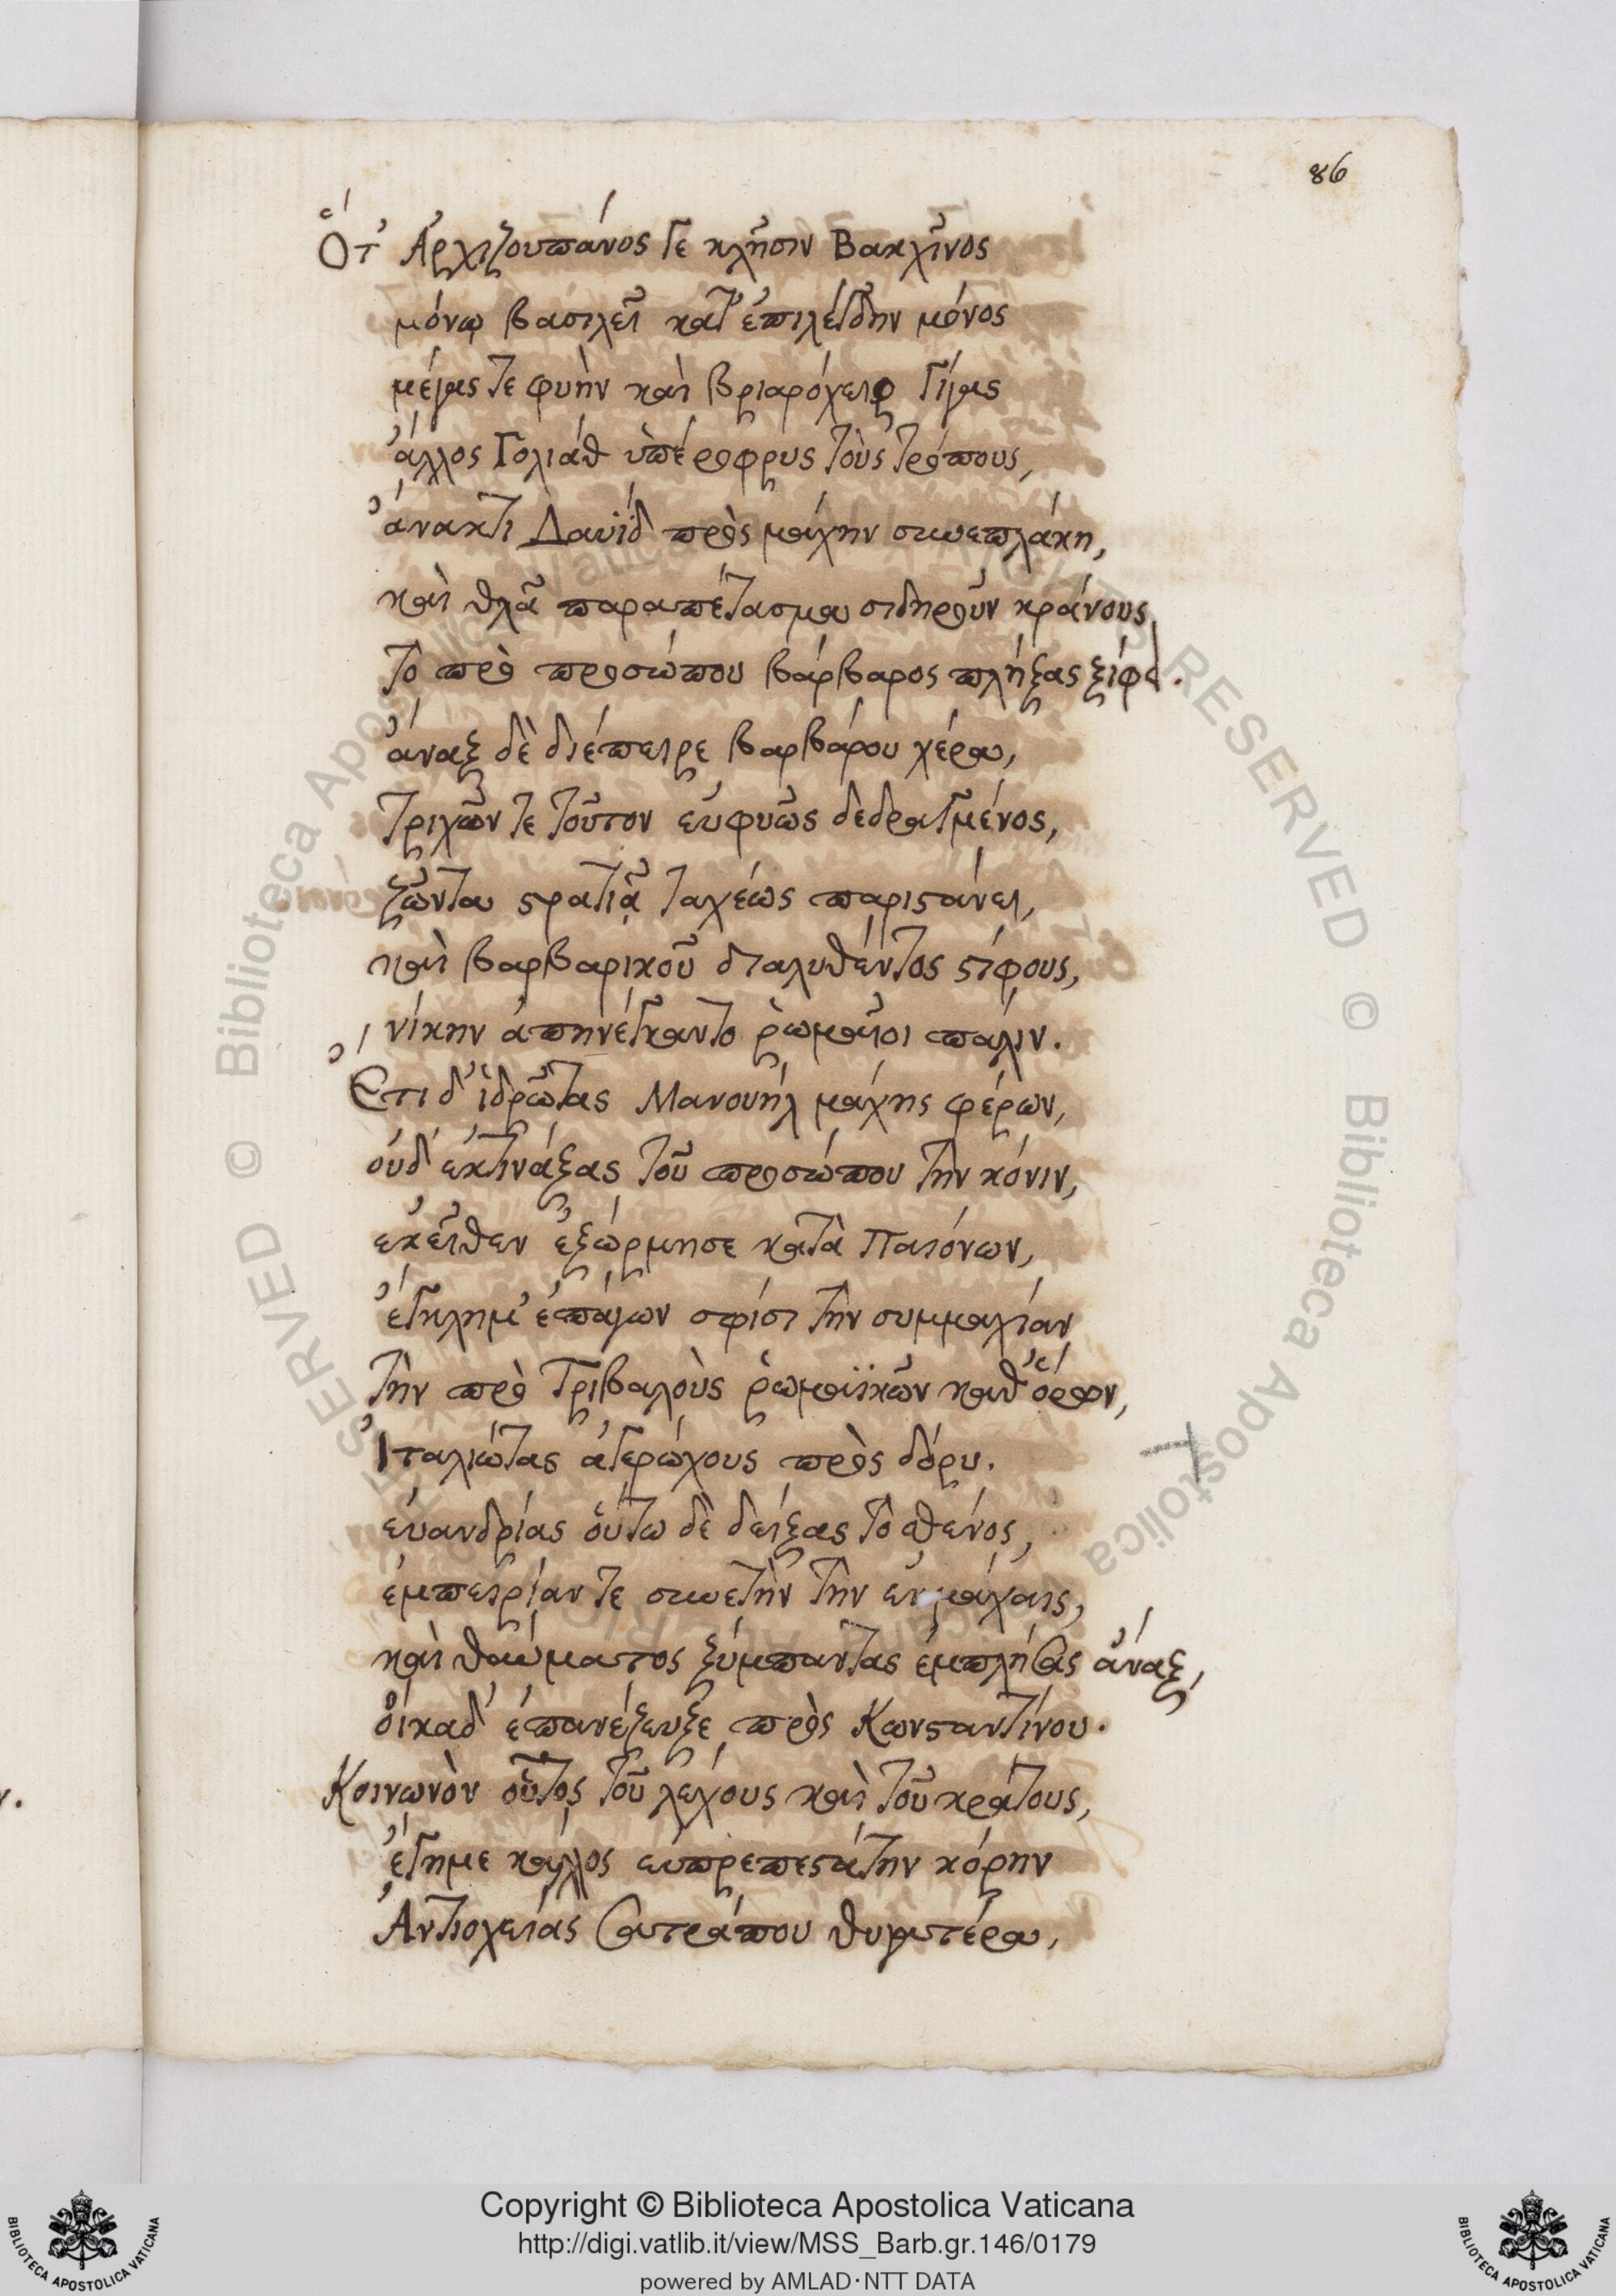 86
Ὅτ' Ἀρχιζουπάνος γε κλῆσιν Βακχῖνος
μόνῳ βασιλεῖ κατ' ἐπιλέγδην μόνος
μέγας τε φυὴν καὶ βριαρόχειρ γίγας
ἄλλος Γολιὰθ ὑπέροφρυς τοὺς τρόπους,
ἄνακτι Δαυΐδ πρὸς μάχην συνεπλάκη,
καὶ θλᾶ παραπέτασμα σιδηροῦν κράνους,
τὸ πρὸ προσώπου βάρβαρος πλήξας ξίφει.
ἄναξ δὲ διέπειρε βαρβάρου χέρα,
τριχῶν τε τοῦτον εὐφυῶς δεδραγμένος,
ζῶντα στρατιᾷ ταχέως παριστάνει,
καὶ βαρβαρικοῦ διαλυθέντος στίφους,
νίκην ἀπηνέγκαντο ῥωμαῖοι πάλιν.
Ἔτι δ' ἱδρῶτας Μανουὴλ μάχης φέρων,
οὐδ' ἐκτινάξας τοῦ προσώπου τὴν κόνιν,
ἐκεῖθεν ἐξώρμησε κατὰ Παιόνων,
ἔγκλημ' ἐπάγων σφίσι τὴν συμμαχίαν
τὴν πρὸ Τριβαλοὺς ῥωμαϊκῶν καθ' ὅρων,
Ἰταλιώτας ἀγερώχους πρὸς δόρυ.
εὐανδρίας οὕτω δὲ δείξας τὸ σθένος,
ἐμπειρίαν τε συνετὴν τὴν ἐν μάχαις,
καὶ θαύματος ξύμπαντας ἐμπλήσας ἄναξ,
οἴκαδ' ἐπανέζευξε πρὸς Κωνσταντίνου.
Κοινωνὸν οὗτος τοῦ λέχους καὶ τοῦ κράτους,
ἔγημε κάλλος εὐπρεπεστάτην κόρην
Ἀντιοχείας σατράπου θυγατέρα,
Copyright © Biblioteca Apostolica Vaticana
http://digi.vatlib.it/view/MSS_Barb.gr.146/0179
powered by AMLAD·NTT DATA
BIBLIOTECA APOSTOLICA VATICANA
BIBLIOTECA APOSTOLICA VATICANA